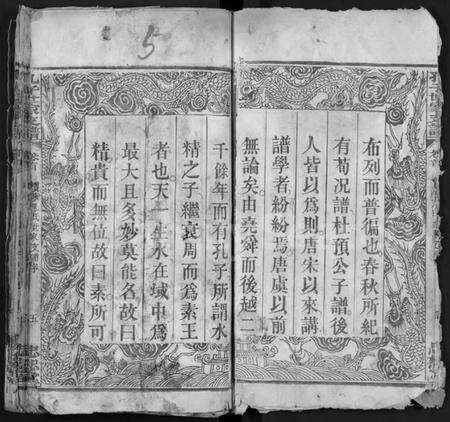 5
布列而普徧也春秋所紀
有荀況譜杜預公子譜後
人皆以爲則唐宋以來講
譜學者紛紛焉唐虞以前
無論矣由堯舜而後越二
千餘年而有孔子所謂水
精之子繼衰周而爲素王
者也天一生水在域中爲
最大且多妙莫能名故曰
精貴而無位故曰素所可
五